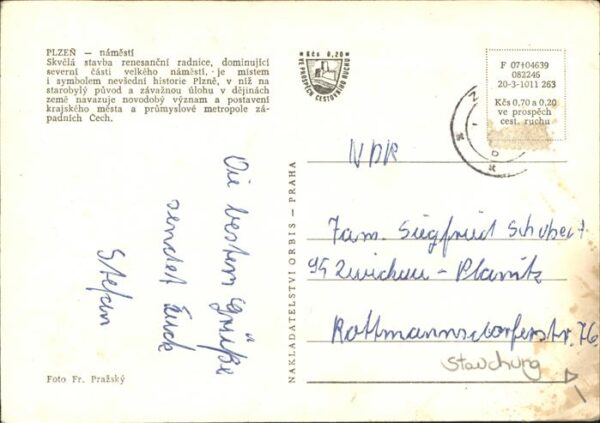 PLZEŇ — náměstí
Skvělá stavba renesanční radnice, dominující
severní části velkého náměstí, je místem
i symbolem nevšední historie Plzně, v níž na
starobylý původ a závažnou úlohu v dějinách
země navazuje novodobý význam a postavení
krajského města a průmyslové metropole zá-
padních Čech.
Kčs 0,20
VE PROSPĚCH CESTOVNÍHO RUCHU
F 07+04639
082246
20-3-1011 263
Kčs 0,70 a 0,20
ve prospěch
cest. ruchu
Die besten Grüße
sendet Euch
Stefan
NAKLADATELSTVÍ ORBIS — PRAHA
NDR
Fam. Siegfried Schubert
95 Zwickau - Planitz
Rottmannsdorferstr. 76
Stauchung
Foto Fr. Pražský